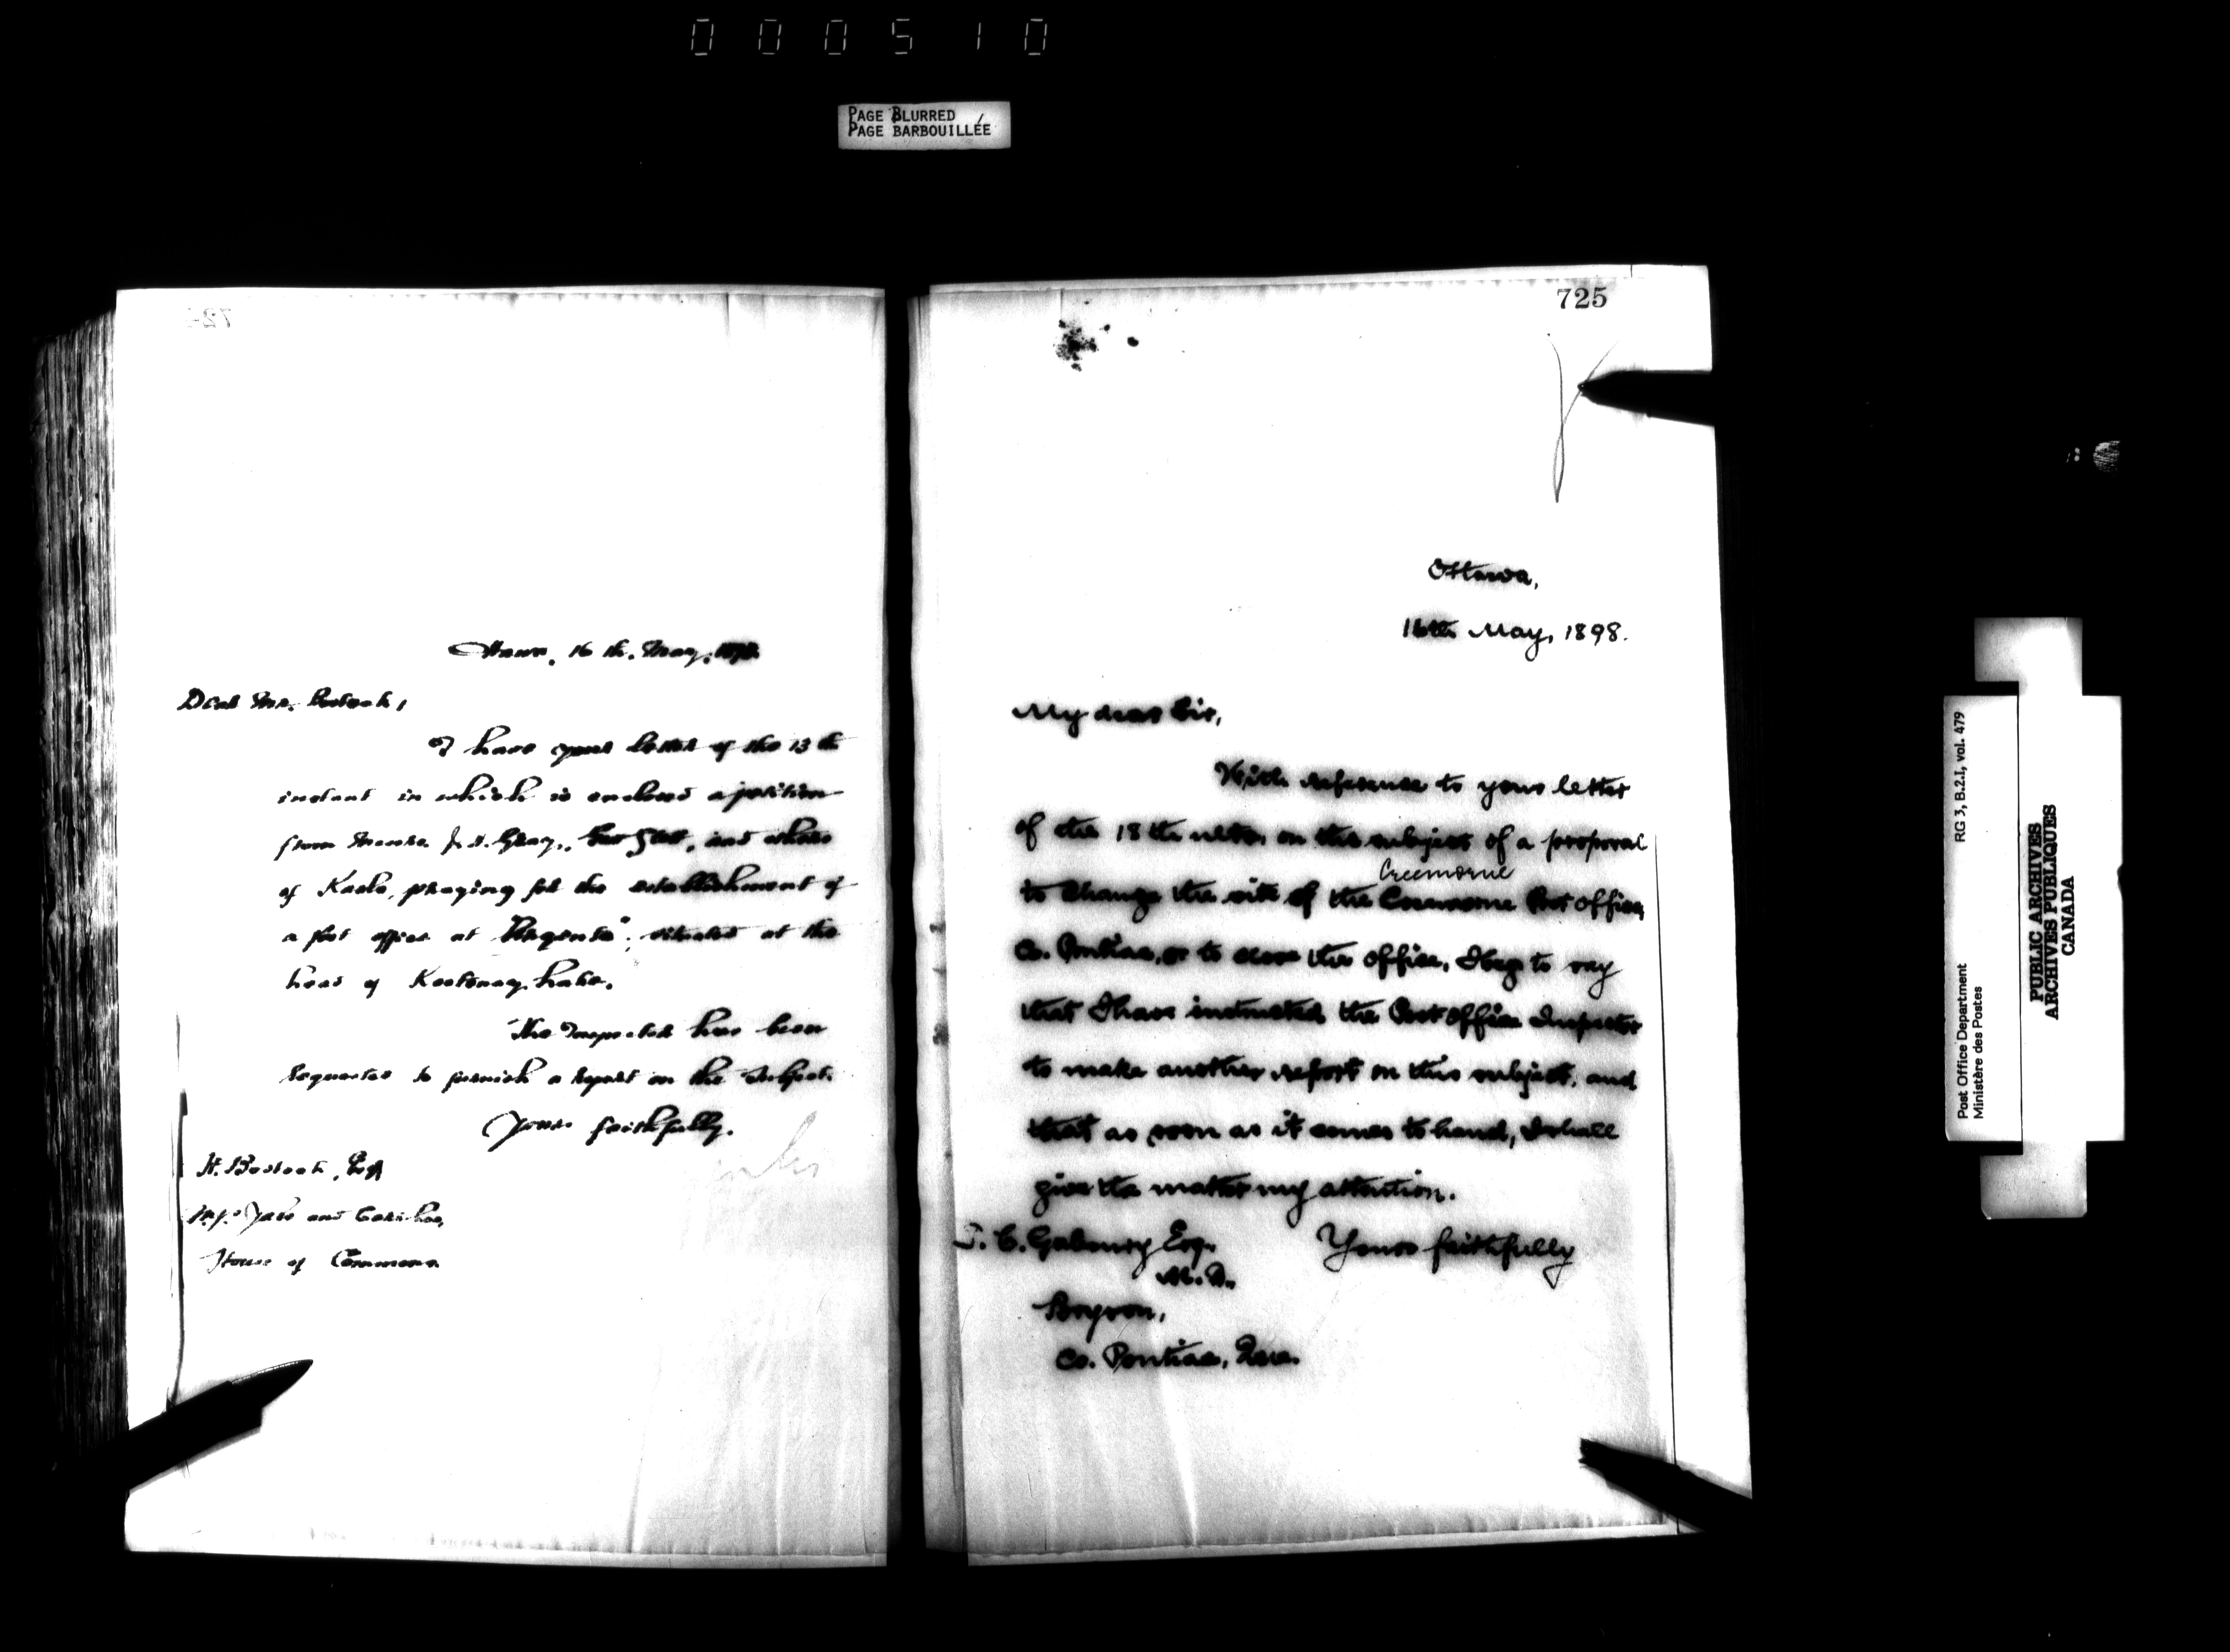 000510
PAGE BLURRED
PAGE BARBOUILLÉE
724
Ottawa, 16th. May, 1898.
Dear Mr. Bostock,
I have your letter of the 13th
instant in which is enclosed a petition
from Messrs. J. A. Gray, and others
of Kaslo, praying for the establishment of
a post office at "Argenta", situated at the
head of Kootenay Lake.
The Inspector has been
requested to furnish a report on the subject.
Yours faithfully.
H. Bostock, Esq
M.P. Yale and Cariboo,
House of Commons
725
Ottawa,
16th May, 1898.
My dear Sir,
With reference to your letter
of the 18th ulto, on the subject of a proposal
Creemorne
to change the site of the Creemorne Post Office,
Co. Pontiac, or to close the office, I beg to say
that I have instructed the Post Office Inspector
to make another report on this subject, and
that as soon as it comes to hand, I shall
give the matter my attention.
Yours faithfully
T. C. Gaboury Esq.
M.D.
Bryson,
Co. Pontiac, Que.
RG 3, B.2.I, vol. 479
Post Office Department
Ministère des Postes
PUBLIC ARCHIVES
ARCHIVES PUBLIQUES
CANADA